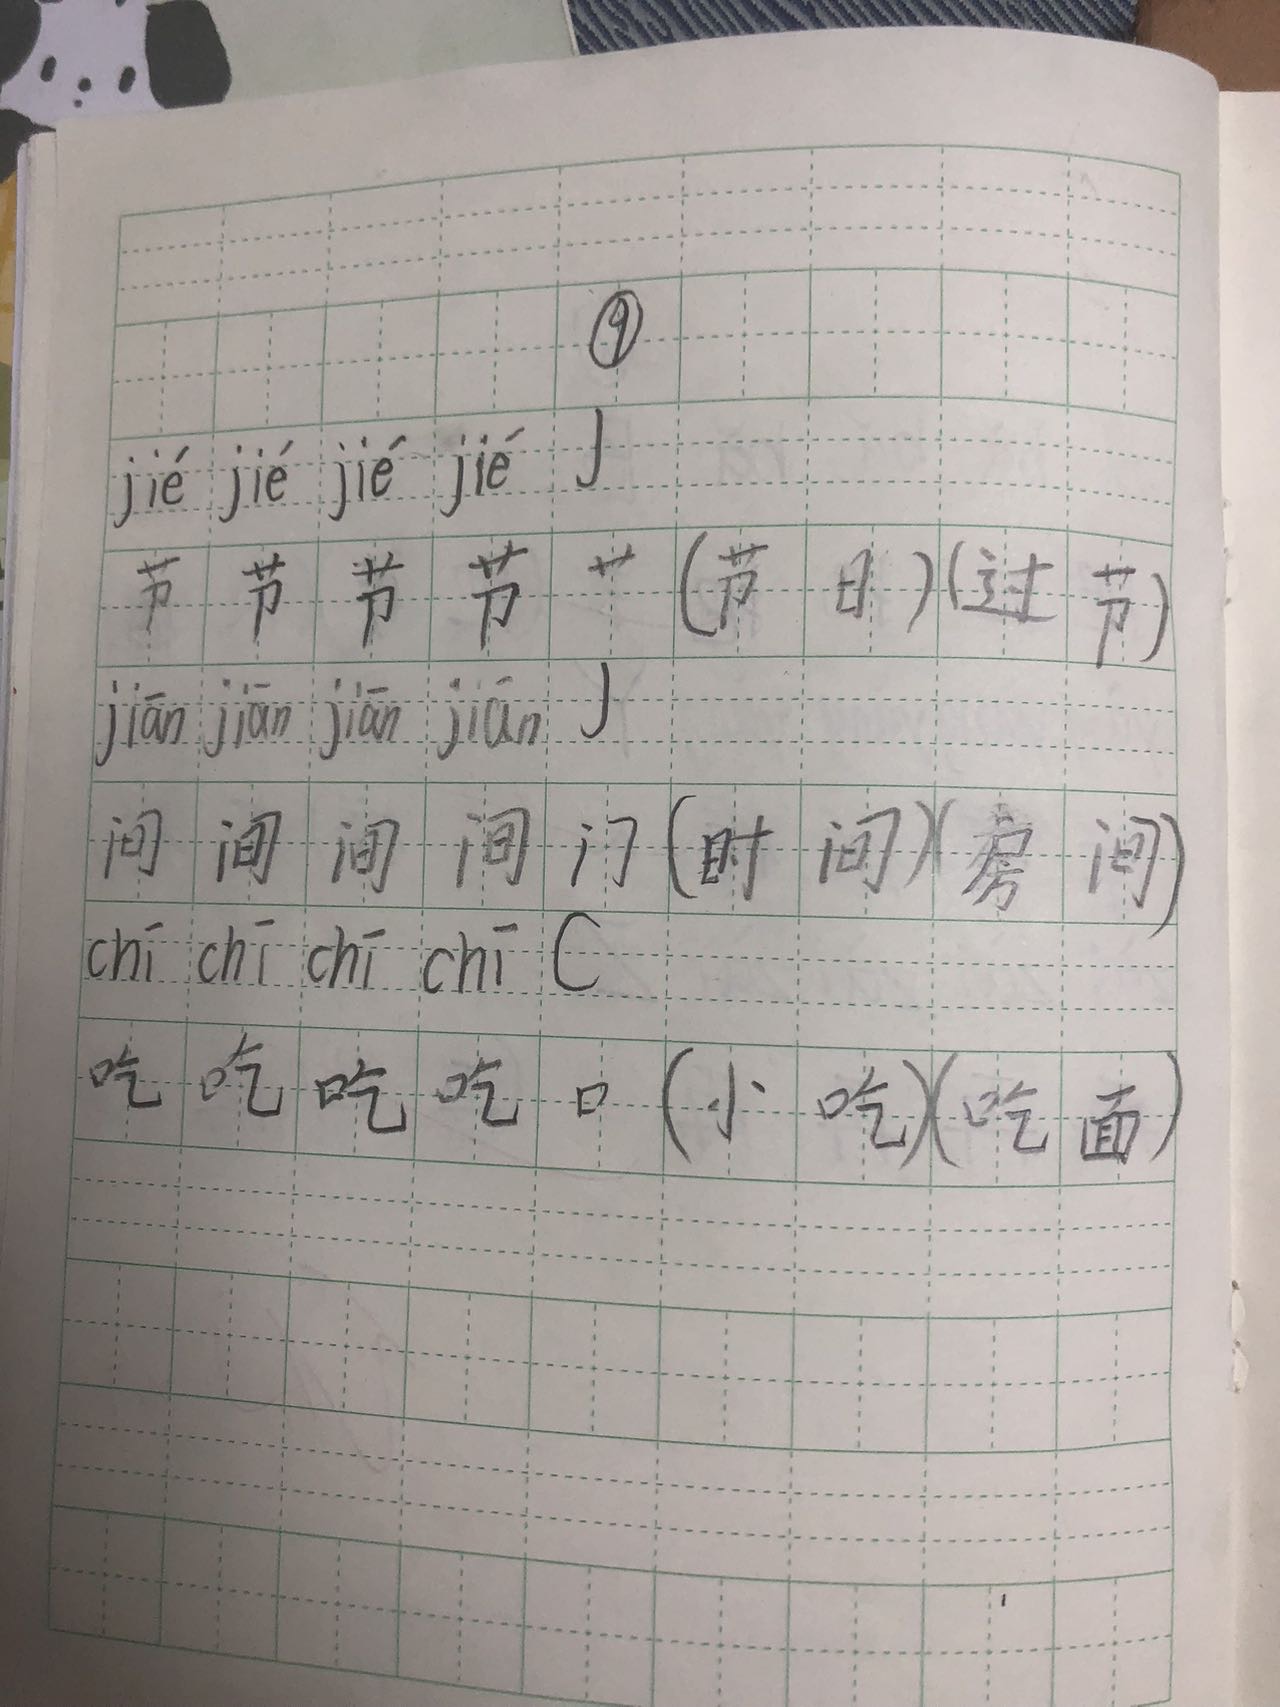 ⑨
jié jié jié jié J
节 节 节 节 艹 (节日)(过节)
jiān jiān jiān jiān J
间 间 间 间 门 (时间)(房间)
chī chī chī chī C
吃 吃 吃 吃 口 (小吃)(吃面)